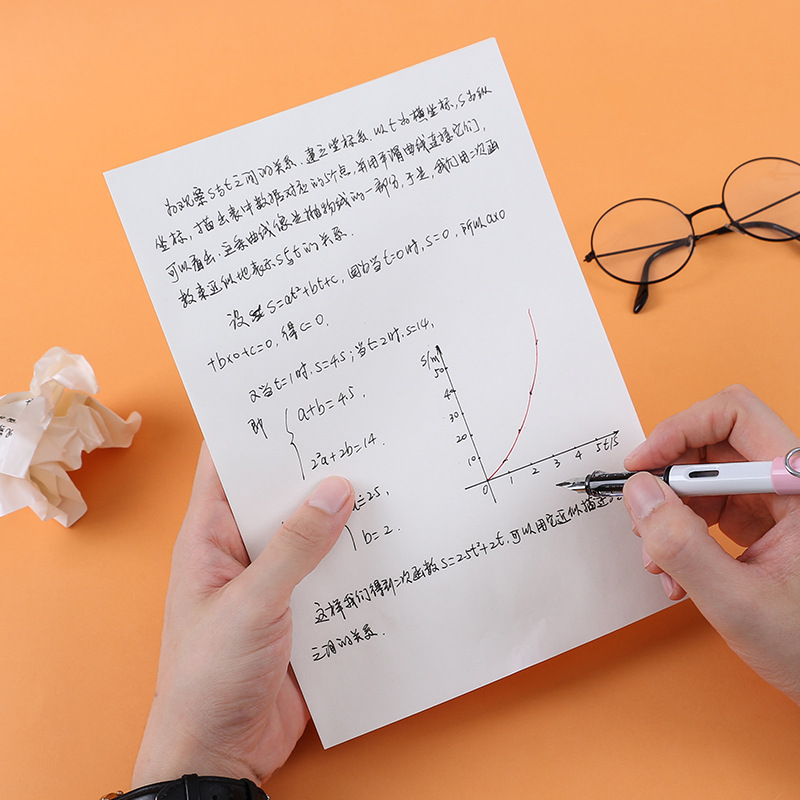 为观察s与t之间的关系,建立坐标系,以t为横坐标,s为纵
坐标,描出表中数据对应的5个点,并用平滑曲线连接它们,
可以看出,这条曲线像是抛物线的一部分,于是,我们用二次函
数来近似地表示s与t的关系.
设 s=at²+bt+c,因为当t=0时,s=0,所以a×0
+b×0+c=0,得c=0.
又当t=1时,s=4.5;当t=2时,s=14,
即
a+b=4.5,
2²a+2b=14.
=2.5,
b=2.
s/m
50
40
30
20
10
0 1 2 3 4 5 t/s
这样我们得到二次函数s=2.5t²+2t,可以用它近似描述
之间的关系.